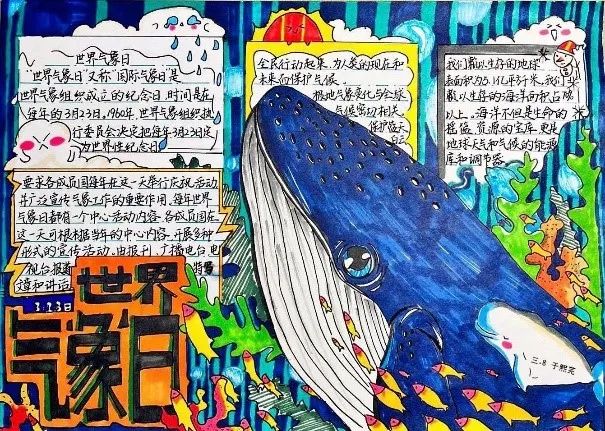 世界气象日
世界气象日又称"国际气象日"是
世界气象组织成立的纪念日,时间是在
每年的3月23日。1960年,世界气象组织执
行委员会决定把每年3月23日定
为世界性纪念日
要求各成员国每年在这一天举行庆祝活动
并广泛宣传气象工作的重要作用。每年世界
气象日都有一个中心活动内容,各成员国在
这一天可根据当年的中心内容,开展多种
形式的宣传活动,由报刊、广播电台、电
视台报道
文章和讲话
3.23日
世界
气象日
全民行动起来,为人类的现在和
未来而保护气候。
极地气象变化与全球
气候密切相关
保护蓝天
我们赖以生存的地球
表面积为5.1亿平方米,我们
赖以生存的海洋面积占
以上。海洋不但是生命的
摇篮,资源的宝库,更是
地球天气和气候的能源
库和调节器
三.8